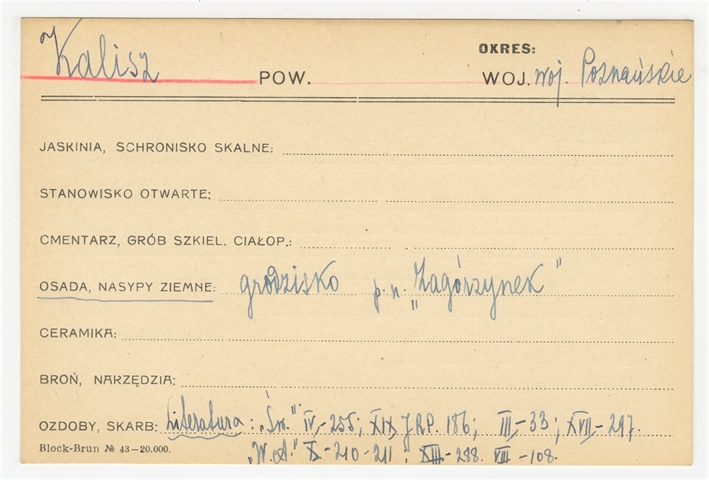 Kalisz POW. OKRES: WOJ. woj. Poznańskie
JASKINIA, SCHRONISKO SKALNE:
STANOWISKO OTWARTE:
CMENTARZ, GRÓB SZKIEL. CIAŁOP.:
OSADA, NASYPY ZIEMNE: grodzisko p. n. „Zagórzynek"
CERAMIKA:
BROŃ, NARZĘDZIA:
OZDOBY, SKARB: Literatura: „Św." IV-255; XIX, JRP. 186; III-33; XVII-297.
Block-Brun № 43—20.000. „W.A." X-210-211; XIII-288. VII-108.